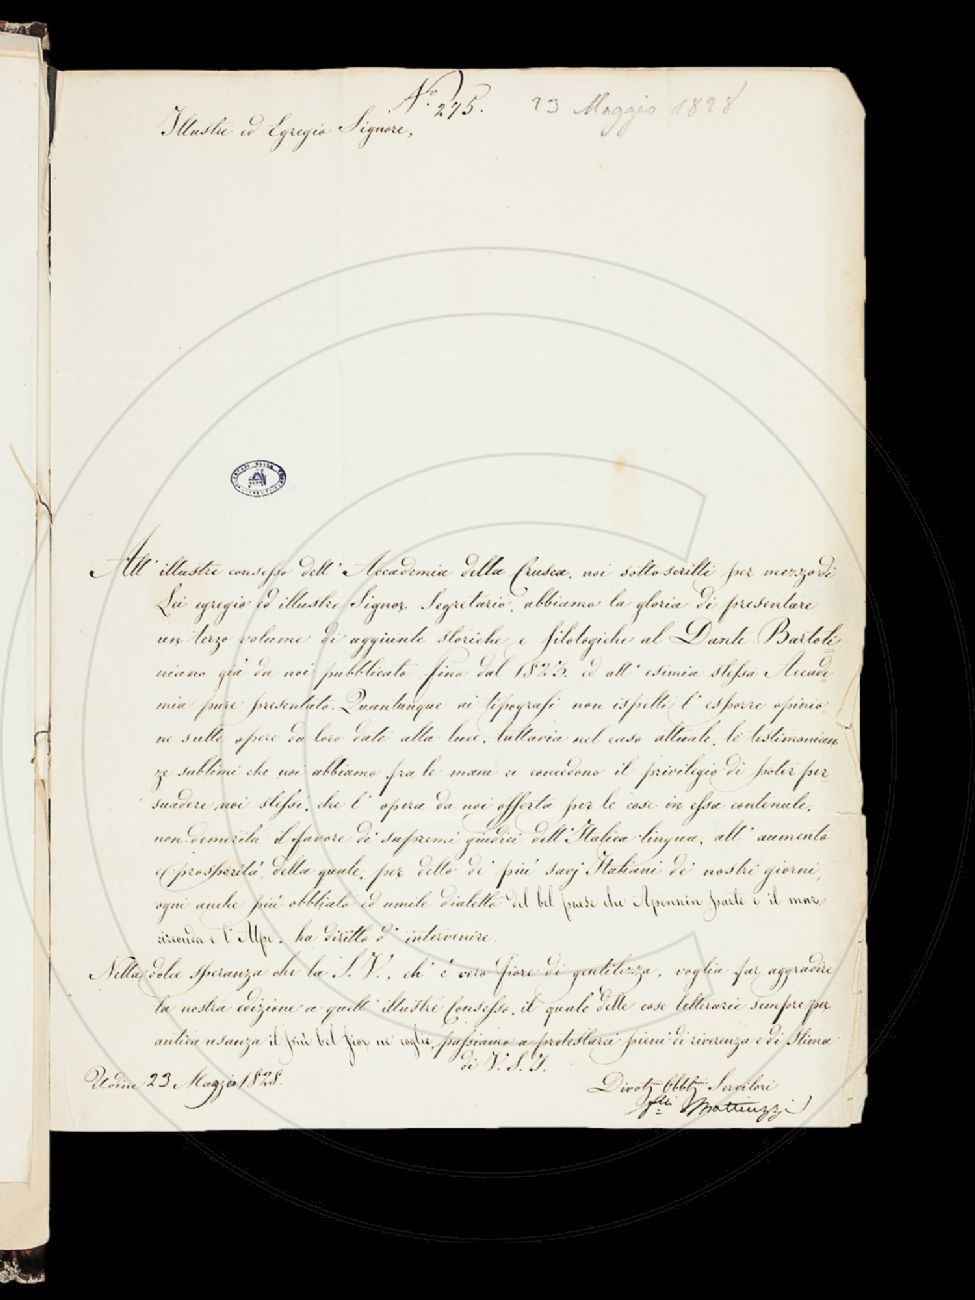 N.° 275.
23 Maggio 1828
Illustre ed Egregio Signore,
All' illustre consesso dell' Accademia della Crusca, noi sottoscritti per mezzo di
Lei egregio ed illustre Signor Segretario, abbiamo la gloria di presentare
un terzo volume di aggiunte storiche e filologiche al Dante Bartoli=
niano già da noi pubblicato fino dal 1823. ed all' esimia stessa Accade=
mia pure presentato. Quantunque ai tipografi non ispetti l' esporre opinio=
ne sulle opere da loro date alla luce, tuttavia nel caso attuale, le testimonian
ze sublimi che noi abbiamo fra le mani ci concedono il privilegio di poter per
suadere noi stessi, che l' opera da noi offerta per le cose in essa contenute,
non demerita il favore di supremi giudici dell' Italica lingua, all' aumento
e prosperità della quale, per detto de' più savj Italiani de' nostri giorni,
ogni anche più obbliato ed umile dialetto del bel paese che Apennin parte e il mar
circonda e l' Alpe, ha diritto d' intervenire.
Nella dolce speranza che la S. V., ch' è vero fiore di gentilezza, voglia far aggradire
la nostra edizione a quell' illustre Consesso, il quale delle cose letterarie sempre per
antica usanza il più bel fior ne coglie, passiamo a protestarci pieni di riverenza e di stima
di V. S. I.
Udine 23 Maggio 1828.
Divot.mi Obbl.mi Servitori
F.lli Mattiuzzi